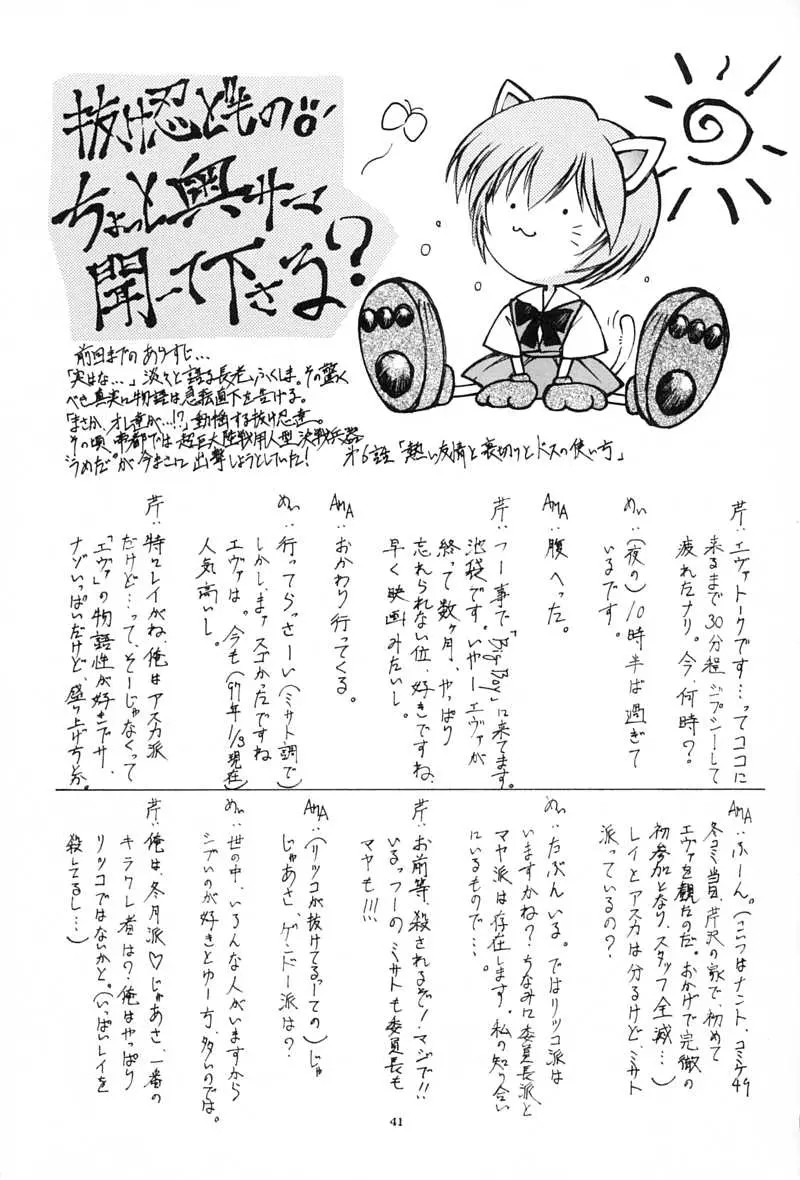 抜け忍どもの
ちょっと奥サマ
聞いて下さる?
前回までのあらすじ…
「実はな…」淡々と語る長老・ふくしま。その驚く
べき真実に物語は急転直下を告げる。
「まさか、オレ達が…!?」動揺する抜け忍達。
その頃、帝都では超巨大陸戦用人型決戦兵器
"うめだ"が今まさに出撃しようとしていた!
第6話「熱い友情と裏切りとドスの使い方」
芹:エヴァトークです…ってココに
来るまで30分程ジプシーして
疲れたナリ。今、何時?
めい:(夜の)10時半ば過ぎて
いるです。
AMA:腹へった。
芹:つー事で「Big Boy」に来てます。
池袋です。いやーエヴァが
終って数ヶ月、やっぱり
忘れられない位、好きですね、
早く映画みたいし。
AMA:おかわり行ってくる。
めい:行ってらっさーい(ミサト調で)
しかし、まァスゴかったですね
エヴァは。今も(97年1/3現在)
人気高いし。
芹:特にレイがね、俺はアスカ派
だけど…って、そーじゃなくって
「エヴァ」の物語性が好きでサ、
ナゾいっぱいだけど、盛り上げ方とか。
AMA:ふーん。(こいつはナント、コミケ49
冬コミ当日、芹沢の家で、初めて
エヴァを観たのだ。おかげで完徹の
初参加となり、スタッフ全滅…)
レイとアスカは分るけど、ミサト
派っているの?
めい:たぶんいる。ではリツコ派は
いますかね?ちなみに委員長派と
マヤ派は存在します。私の知り合い
にいるもので…。
芹:お前等、殺されるぞ!マジで!!
いるっつーのミサトも委員長も
マヤも!!!
AMA:(リツコが抜けてるっーての)じゃ
じゃあさ、ゲンドー派は?
めい:世の中、いろんな人がいますから
シブいのが好きとゆー方、多いのでは。
芹:俺は、冬月派♡じゃあさ、一番の
キラクレ者は?俺はやっぱり
リツコではないかと。(いっぱいレイを
殺してるし…)
41